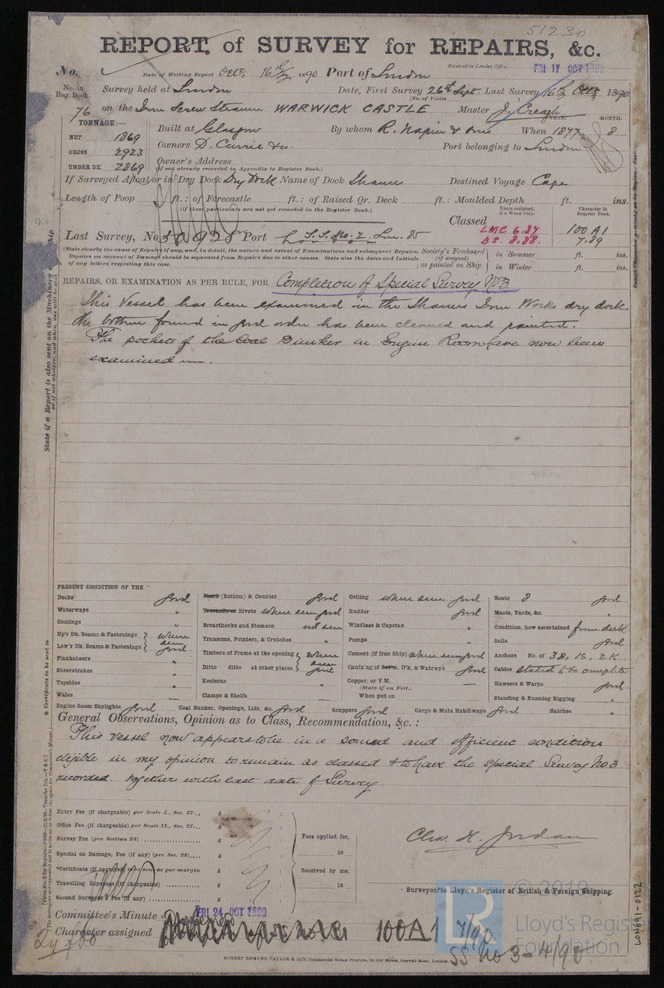 51230
REPORT of SURVEY for REPAIRS, &c.
No. Date of Writing Report Octr 16th 1890 Port of London Received in London Office FRI 17 OCT 1890
No. in Reg. Book. Survey held at London Date, First Survey 26th Sept. Last Survey 16th Octr 1890
(No. of Visits
76 on the Iron Screw Steamer WARWICK CASTLE Master J. Creagh
TONNAGE:— MONTH.
NET 1869 Built at Glasgow By whom R. Napier & Sons When 1877 8
GROSS 2923 Owners D. Currie & Co. Port belonging to London
UNDER DK. 2869 Owner's Address
(if not already recorded in Appendix to Register Book.)
If Surveyed Afloat or in Dry Dock Dry Dock Name of Dock Thames Destined Voyage Cape
Length of Poop ft.: of Forecastle ft.: of Raised Qr. Deck ft.: Moulded Depth ft. ins.
(If these particulars are not yet recorded in the Register Book.)
Classed Years assigned, if a Wood ship. Character in Register Book.
LMC 6.87 100 A1
Last Survey, No. 50928 Port BS. 8.88 7.89
(State clearly the cause of Repairs if any, and, in detail, the nature and extent of Examinations and subsequent Repairs. Repairs on account of Damage should be separated from Repairs due to other causes. State also the dates and initials of any letters respecting this case.
Society's Freeboard (if assigned) as painted on Ship in Summer ft. ins.
in Winter ft. ins.
REPAIRS, OR EXAMINATION AS PER RULE, FOR Completion of Special Survey No 3
This Vessel has been examined in the Thames Iron Works dry dock
the bottom found in good order has been cleaned and painted.
The pockets of the Coal Bunker in Engine Room have now been
examined
PRESENT CONDITION OF THE
Decks good (Bottom) & Counter good Ceiling where seen good Boats 8 good
Waterways " Rivets where seen good Rudder good Masts, Yards, &c. "
Comings " Breasthooks and Stemson not seen Windlass & Capstan " Condition, how ascertained from deck
Up'r Dk. Beams & Fastenings where seen good Transoms, Pointers, & Crutches " Pumps " Sails good
Low'r Dk. Beams & Fastenings Timbers of Frame at the opening where seen good Cement (if Iron Ship) where seen good Anchors No. of 3B. 1S. 2K
Planksheers " Ditto ditto at other places Caulk'ng of D'k, & Watrwys good Cables stated to be complete
Sheerstrakes " Keelsons " Copper, or Y M. — Hawsers & Warps good
Topsides " (State if on Felt.)
Wales — Clamps & Shelfs — When put on Standing & Running Rigging "
Engine Room Skylights good Coal Bunker, Openings, Lids, &c. good Scuppers good Cargo & Main Hatchways good Hatches "
General Observations, Opinion as to Class, Recommendation, &c. :
This vessel now appears to be in a sound and efficient condition
eligible in my opinion to remain as classed & to have the Special Survey No 3
recorded together with last date of Survey
Entry Fee (if chargeable) per Scale I., Sec. 27. £
Office Fee (if chargeable) per Scale II., Sec. 27. £ Fees applied for,
Survey Fee (per Section 28) £ 18
Special on Damage, Fee (if any) (per Sec. 28) £
*Certificate (if required) as per margin £ Received by me,
Travelling Expenses (if chargeable) £ 18
Second Surveyor's Fee (if any) £
Chas. H. Jordan
Surveyor to Lloyd's Register of British & Foreign Shipping.
Committee's Minute FRI 24 OCT 1890
Character assigned 100A1 7/90
SS No 3-4/90
ROBERT EDMUND TAYLOR & SON,
© 2019
Lloyd's Register Foundation
LON691-0122